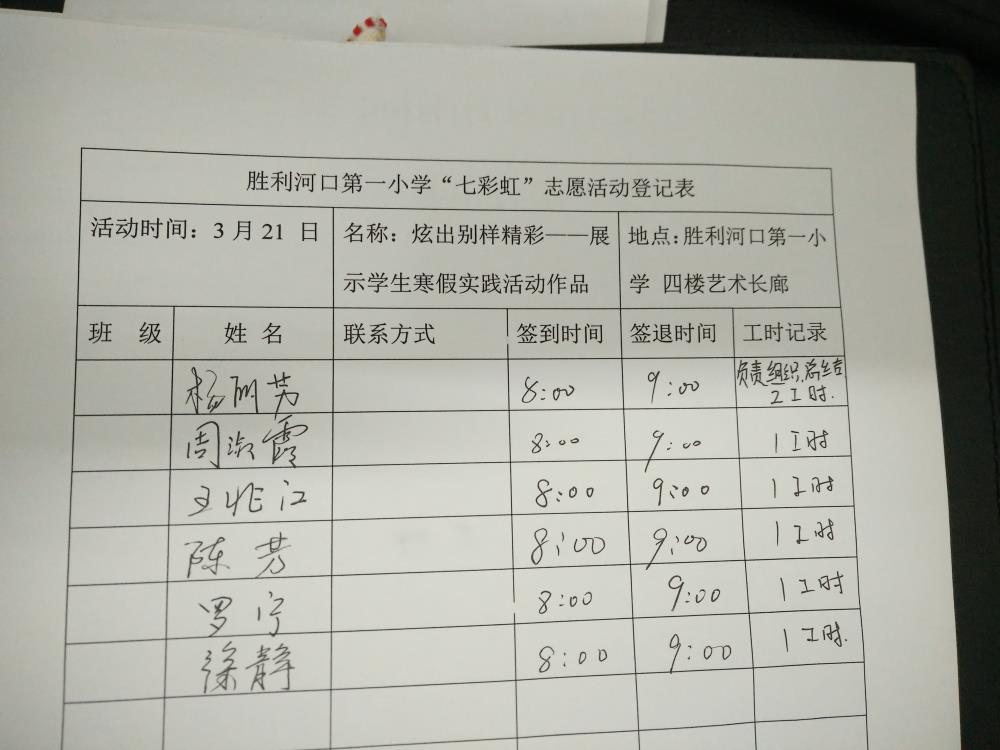 胜利河口第一小学“七彩虹”志愿活动登记表
活动时间：3 月 21 日
名称：炫出别样精彩——展
示学生寒假实践活动作品
地点：胜利河口第一小
学 四楼艺术长廊
班 级 姓 名 联系方式 签到时间 签退时间 工时记录
杨丽芳 8:00 9:00 负责组织、总结
2工时.
周淑霞 8:00 9:00 1工时
王兆江 8:00 9:00 1工时
陈芳 8:00 9:00 1工时
罗宁 8:00 9:00 1工时
徐静 8:00 9:00 1工时.